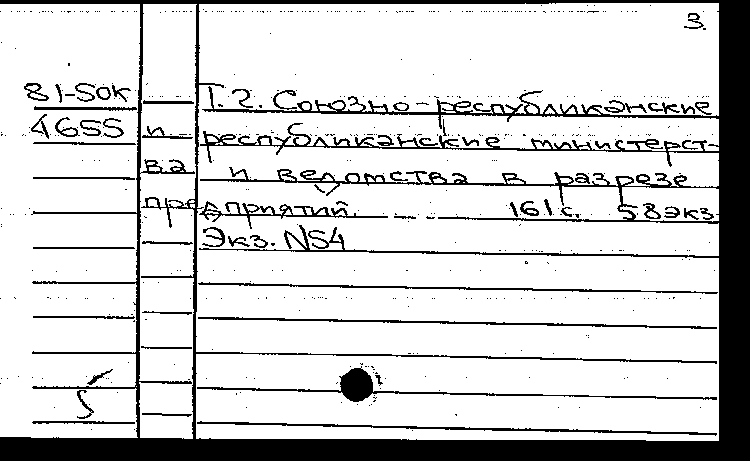 3.
81-50к Т.2. Союзно-республиканские
4655 и республиканские министерст-
ва и ведомства в разрезе
предприятий. 161с. 58экз.
Экз. N54
5